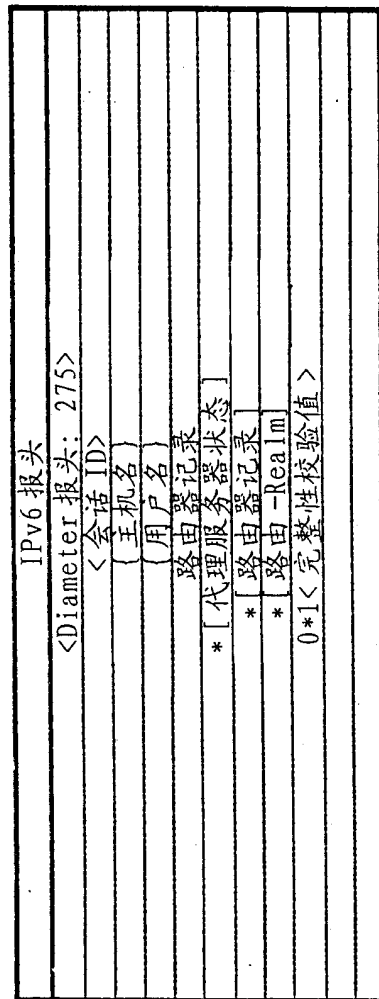 IPv6 报头
<Diameter 报头: 275>
<会话 ID>
{主机名}
{用户名}
路由器记录
*[代理服务器状态]
*[路由器记录]
*[路由-Realm]
0*1<完整性校验值>